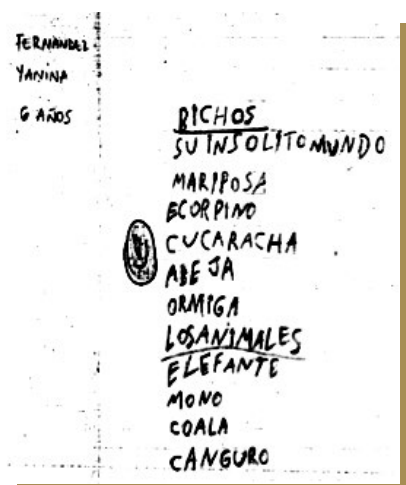 FERNANDEZ
YANINA
6 AÑOS
BICHOS
SU INSOLITO MUNDO
MARIPOSA
ECORPINO
CUCARACHA
ABEJA
ORMIGA
LOSANIMALES
ELEFANTE
MONO
COALA
CANGURO